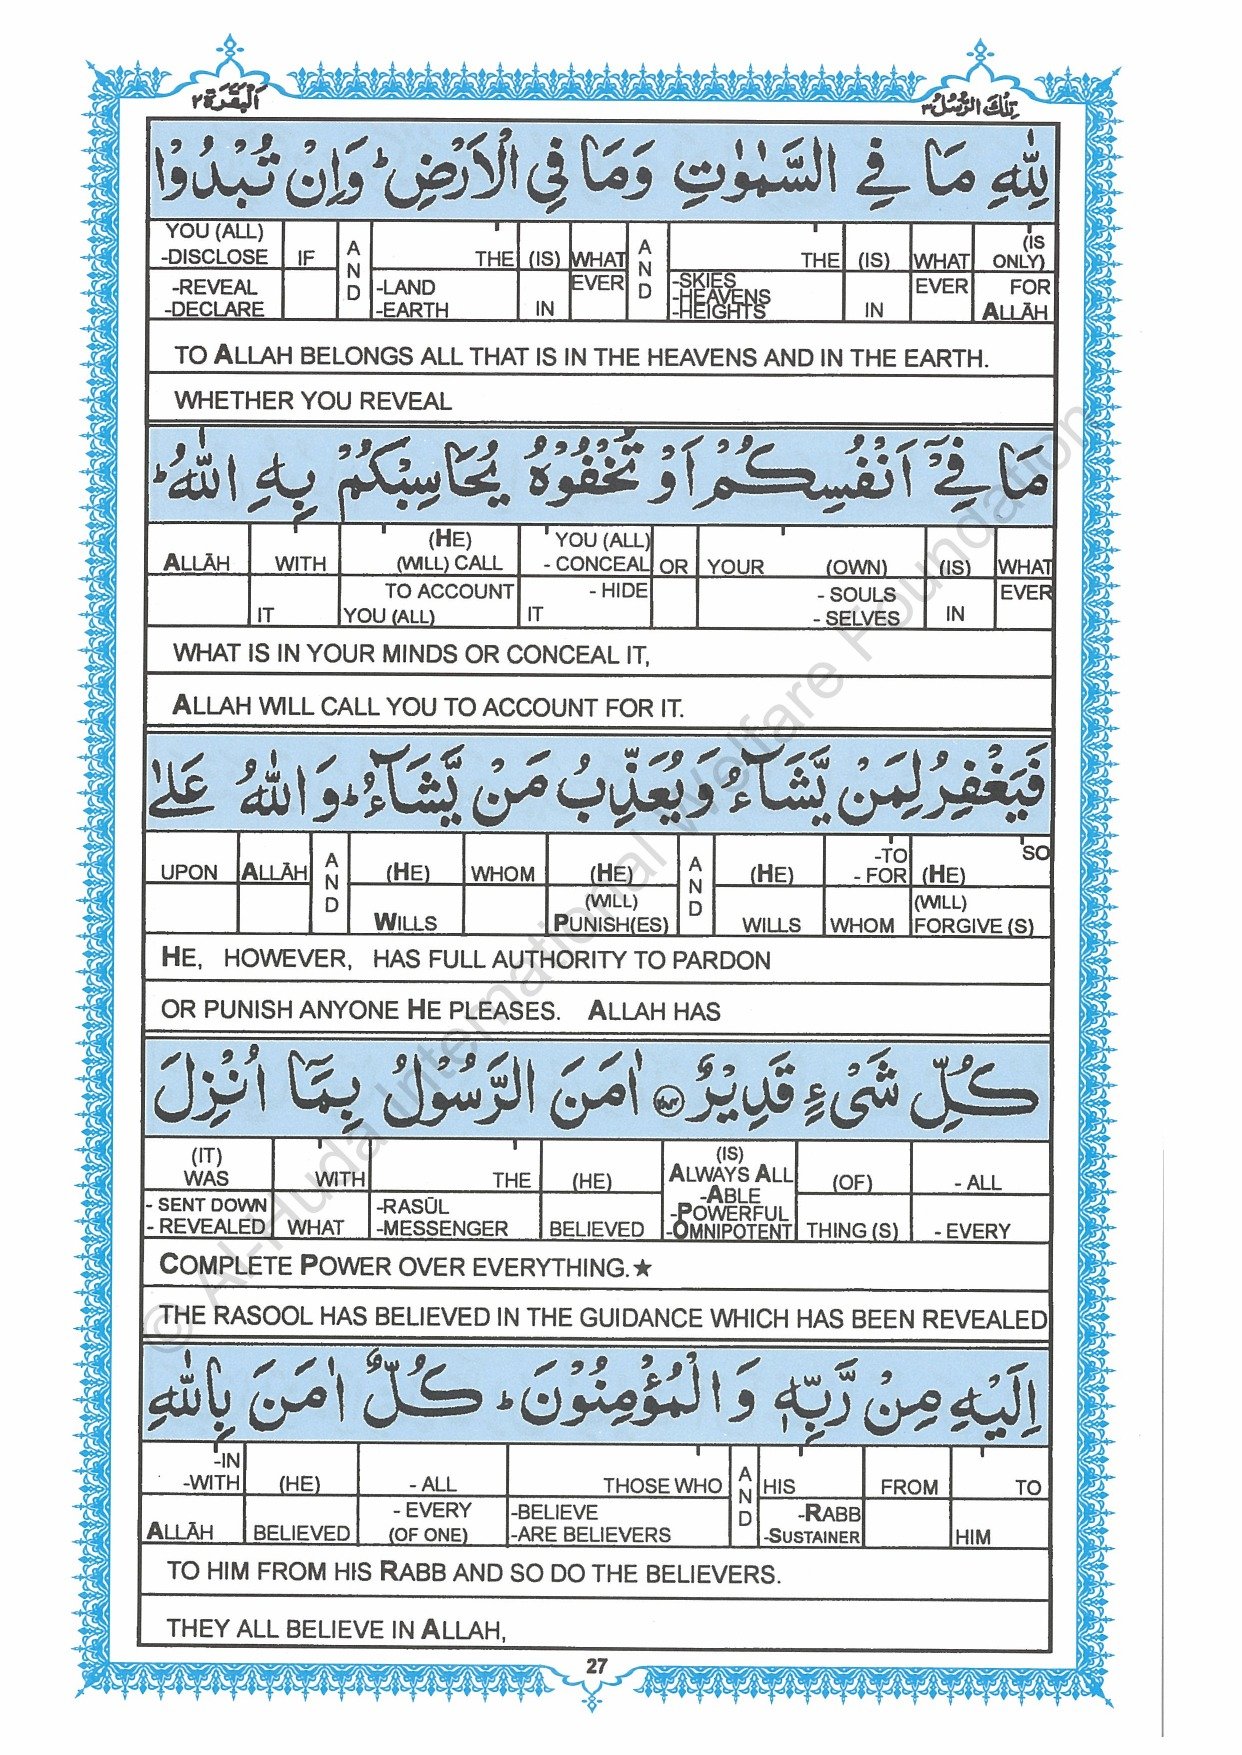 تِلْكَ الرُّسُلُ ٣
اَلْبَقَرَة ٢
لِلّٰهِ مَا فِي السَّمٰوٰتِ وَمَا فِي الْاَرْضِ ؕ وَاِنْ تُبْدُوْا
YOU (ALL) -DISCLOSE -REVEAL -DECLARE | IF | AND | THE -LAND -EARTH | (IS) IN | WHAT EVER | AND | THE -SKIES -HEAVENS -HEIGHTS | (IS) IN | WHAT EVER | (IS ONLY) FOR ALLĀH
TO ALLAH BELONGS ALL THAT IS IN THE HEAVENS AND IN THE EARTH.
WHETHER YOU REVEAL
مَا فِيْۤ اَنْفُسِكُمْ اَوْ تُخْفُوْهُ يُحَاسِبْكُمْ بِهِ اللّٰهُ ؕ
ALLĀH | WITH IT | (HE) (WILL) CALL TO ACCOUNT YOU (ALL) | YOU (ALL) - CONCEAL - HIDE IT | OR | YOUR (OWN) - SOULS - SELVES | (IS) IN | WHAT EVER
WHAT IS IN YOUR MINDS OR CONCEAL IT,
ALLAH WILL CALL YOU TO ACCOUNT FOR IT.
فَيَغْفِرُ لِمَنْ يَّشَآءُ وَيُعَذِّبُ مَنْ يَّشَآءُ ؕ وَاللّٰهُ عَلٰى
UPON | ALLĀH | AND | (HE) WILLS | WHOM | (HE) (WILL) PUNISH(ES) | AND | (HE) WILLS | -TO - FOR WHOM | SO (HE) (WILL) FORGIVE (S)
HE, HOWEVER, HAS FULL AUTHORITY TO PARDON
OR PUNISH ANYONE HE PLEASES. ALLAH HAS
كُلِّ شَيْءٍ قَدِيْرٌ ۝٢٨٤ اٰمَنَ الرَّسُوْلُ بِمَاۤ اُنْزِلَ
(IT) WAS - SENT DOWN - REVEALED | WITH WHAT | THE -RASŪL -MESSENGER | (HE) BELIEVED | (IS) ALWAYS ALL -ABLE -POWERFUL -OMNIPOTENT | (OF) THING (S) | - ALL - EVERY
COMPLETE POWER OVER EVERYTHING.★
THE RASOOL HAS BELIEVED IN THE GUIDANCE WHICH HAS BEEN REVEALED
اِلَيْهِ مِنْ رَّبِّهٖ وَالْمُؤْمِنُوْنَ ؕ كُلٌّ اٰمَنَ بِاللّٰهِ
-IN -WITH ALLĀH | (HE) BELIEVED | - ALL - EVERY (OF ONE) | THOSE WHO -BELIEVE -ARE BELIEVERS | AND | HIS -RABB -SUSTAINER | FROM | TO HIM
TO HIM FROM HIS RABB AND SO DO THE BELIEVERS.
THEY ALL BELIEVE IN ALLAH,
27
© Al-Huda International Welfare Foundation